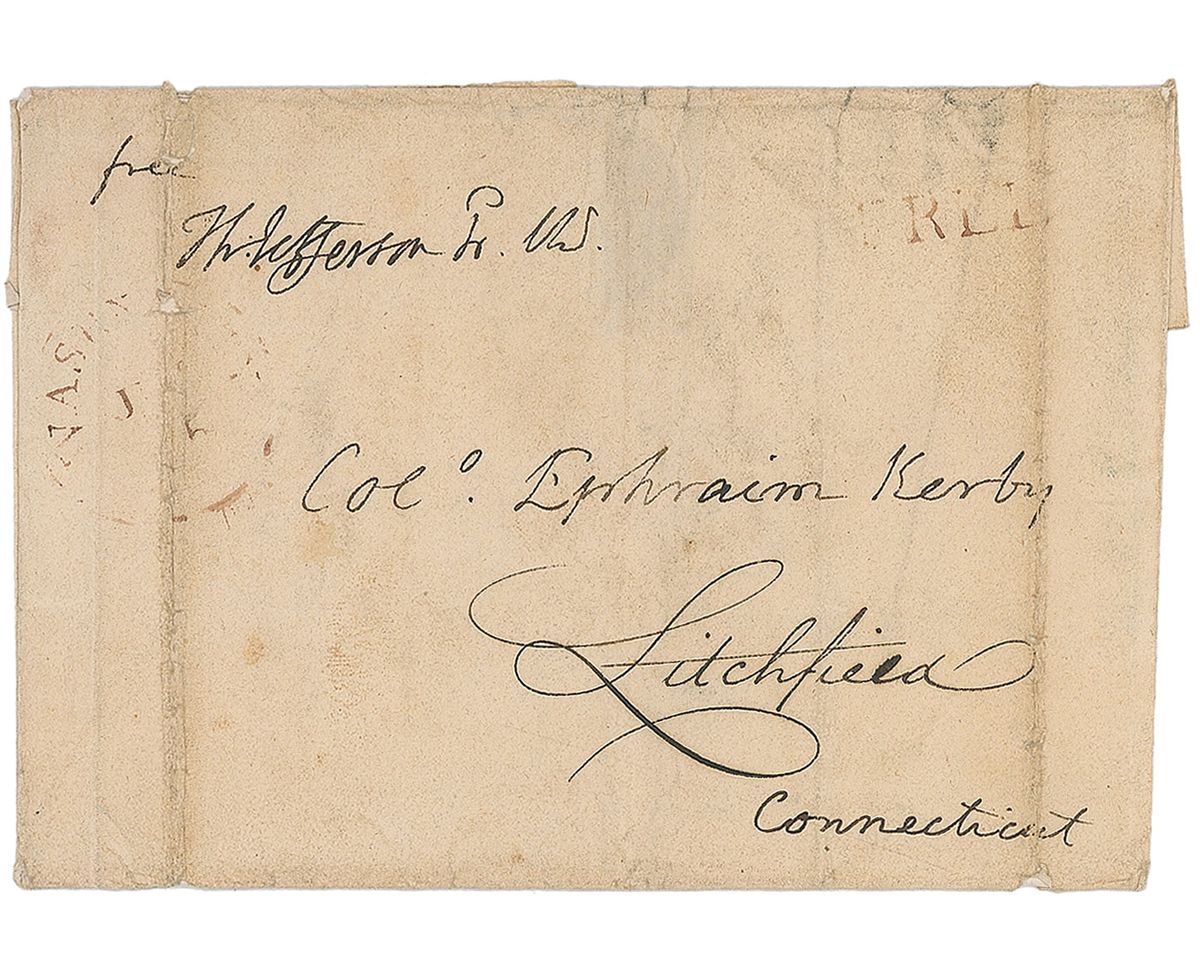 free
Th: Jefferson Pr. US.
FREE
WAS
Colo. Ephraim Kerby
Litchfield
Connecticut